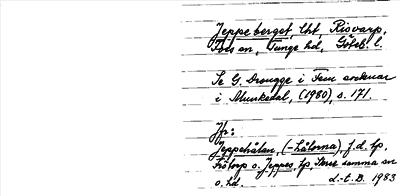 Jeppeberget, lht, Risvarp,
Foss sn, Tunge hd, Göteb. l.
Se G. Drougge i Fem socknar
i Munkedal, (1980), s. 171.
Jfr:
Jeppehålan, (-hålorna), f.d. tp,
Frötorp o. Jeppes, tp, samma sn
o. hd. d.-t. B. 1983